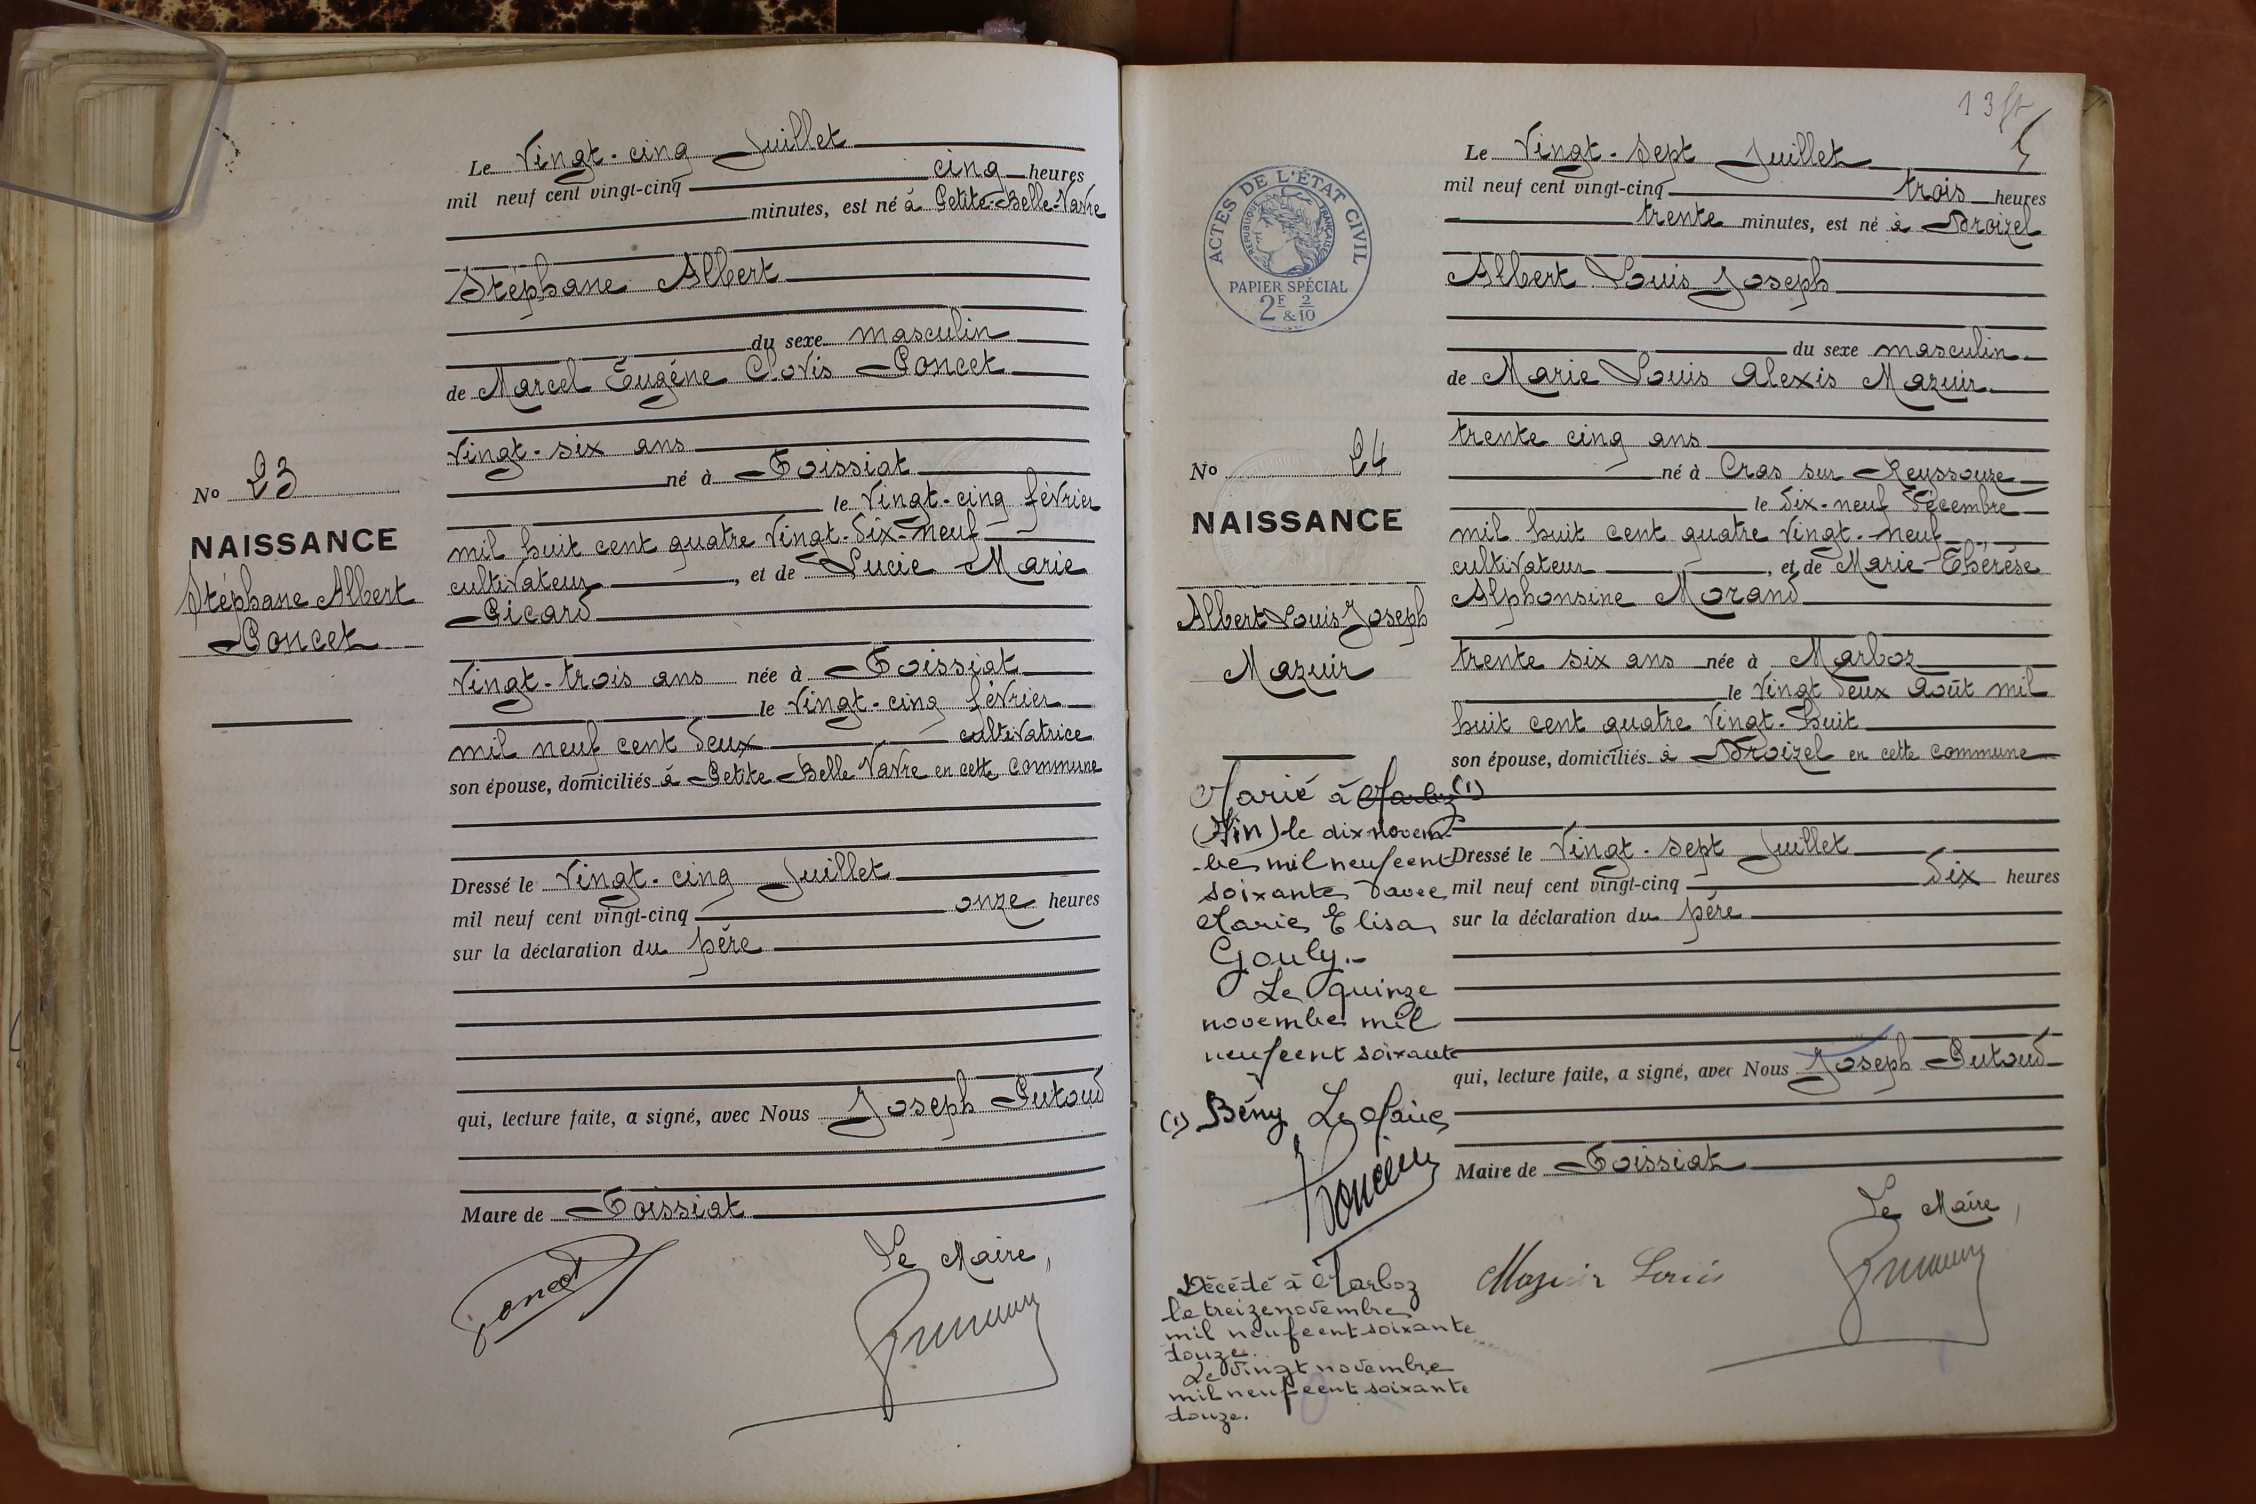 Le Vingt-cinq Juillet
mil neuf cent vingt-cinq cinq heures
minutes, est né à Petite-Belle-Vavre
Stéphane Albert
du sexe masculin
de Marcel Eugène Clovis Poncet
vingt-six ans
né à Foissiat
le vingt-cinq février
mil huit cent quatre vingt-dix-neuf
cultivateur, et de Lucie Marie
Picard
vingt-trois ans née à Foissiat
le vingt-cinq février
mil neuf cent deux cultivatrice
son épouse, domiciliés à Petite Belle Vavre en cette commune
Dressé le vingt-cinq Juillet
mil neuf cent vingt-cinq onze heures
sur la déclaration du père
qui, lecture faite, a signé, avec Nous Joseph Putoud
Maire de Foissiat
Le Maire,
Poncet
No 23
NAISSANCE
Stéphane Albert
Poncet
13
Le Vingt-sept Juillet
mil neuf cent vingt-cinq trois heures
trente minutes, est né à Broizel
Albert Louis Joseph
du sexe masculin
de Marie Louis Alexis Mazuir
trente cinq ans
né à Cras sur Reyssouze
le dix-neuf décembre
mil huit cent quatre vingt-neuf
cultivateur, et de Marie-Thérèse
Alphonsine Morand
trente six ans née à Marboz
le vingt deux août mil
huit cent quatre vingt-huit
son épouse, domiciliés à Broizel en cette commune
Dressé le vingt-sept Juillet
mil neuf cent vingt-cinq dix heures
sur la déclaration du père
qui, lecture faite, a signé, avec Nous Joseph Putoud
Maire de Foissiat
Le Maire,
Mazuir Louis
ACTES DE L'ÉTAT CIVIL
RÉPUBLIQUE FRANÇAISE
PAPIER SPÉCIAL
2F 2
& 10
No 24
NAISSANCE
Albert Louis Joseph
Mazuir
Marié à Marboz (1)
(Ain) le dix novem-
-bre mil neuf cent
soixante avec
Marie Elisa
Gouly.-
Le quinze
novembre mil
neuf cent soixante
(1) Bény Le Maire
Décédé à Marboz
le treize novembre
mil neuf cent soixante
douze.
Le vingt novembre
mil neuf cent soixante
douze.